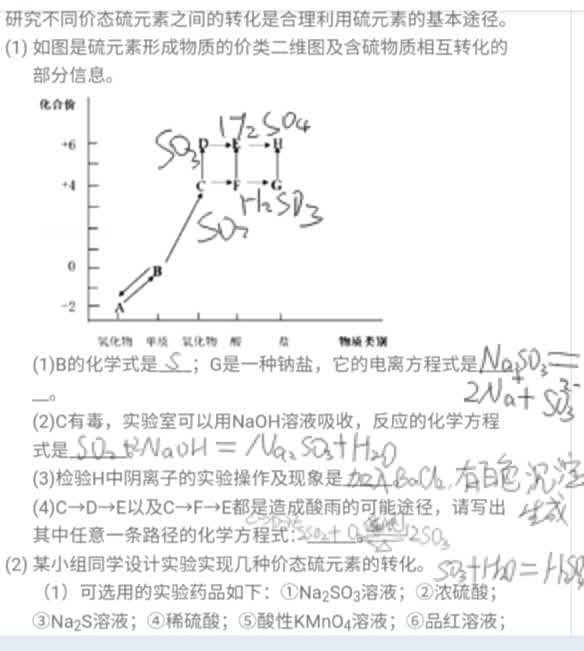 研究不同价态硫元素之间的转化是合理利用硫元素的基本途径。
(1) 如图是硫元素形成物质的价类二维图及含硫物质相互转化的
部分信息。
化合价
H₂SO₄
+6 SO₃ D E H
+4 C F G
H₂SO₃
SO₂
0 B
-2 A
氢化物 单质 氧化物 酸 盐 物质类别
(1)B的化学式是 S ；G是一种钠盐，它的电离方程式是 Na₂SO₃=
2Na⁺+SO₃²⁻
。
(2)C有毒，实验室可以用NaOH溶液吸收，反应的化学方程
式是 SO₂+2NaOH=Na₂SO₃+H₂O
(3)检验H中阴离子的实验操作及现象是 加入BaCl₂,有白色沉淀
生成
(4)C→D→E以及C→F→E都是造成酸雨的可能途径，请写出
其中任意一条路径的化学方程式: 2SO₃
SO₃+H₂O=
(2) 某小组同学设计实验实现几种价态硫元素的转化。
（1）可选用的实验药品如下：①Na₂SO₃溶液；②浓硫酸；
③Na₂S溶液；④稀硫酸；⑤酸性KMnO₄溶液；⑥品红溶液；